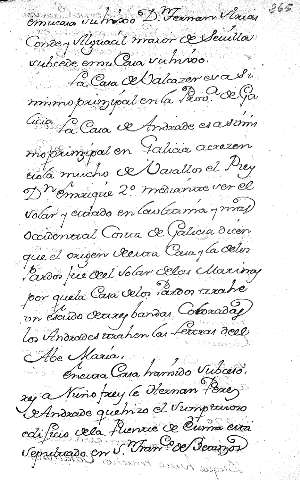 365
en cuia subzedio D.n Fernan Arias
Conde y Alguacil maior de Sevilla
subcede en su Casa su hixo.
La Casa de Valcazer es asi
mismo prinzipal en la Prov.a de Ga
licia La Casa de Andrade es asimis
mo prinzipal en Galicia acrezen
tola mucho de Vasallos el Rey
D.n Enrrique 2.º mediante ver el
solar y estado en la ultima y mas
occidental Costa de Galicia dicen
que el origen de esta Casa y la de los
Pardos fue del Solar de las Mariñas
por que la Casa de los Pardos trahe
un escudo de tres bandas Coloradas
los Andrades trahen las Letras de el
Abe Maria.
En esta Casa han ido subcedi
rey a Nuño frey le Hernan Perez
de Andrade que hizo el sumptuoso
edificio de la Puente de Eume esta
sepultado en S.n Fran.co de Betanzos